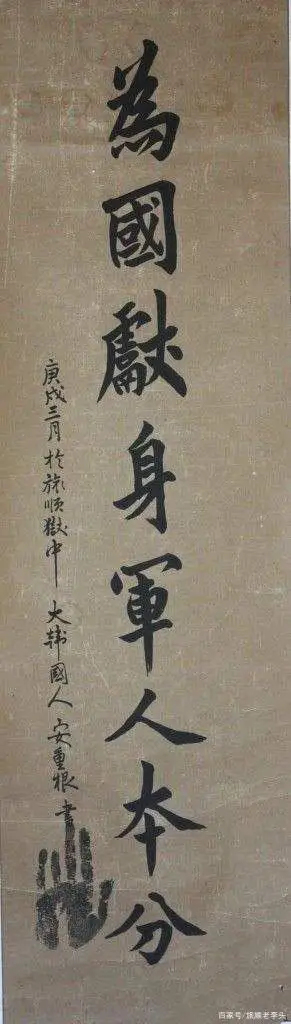 為國獻身軍人本分
庚戌三月 於旅順獄中 大韓國人 安重根 書
百家号/旅顺老李头